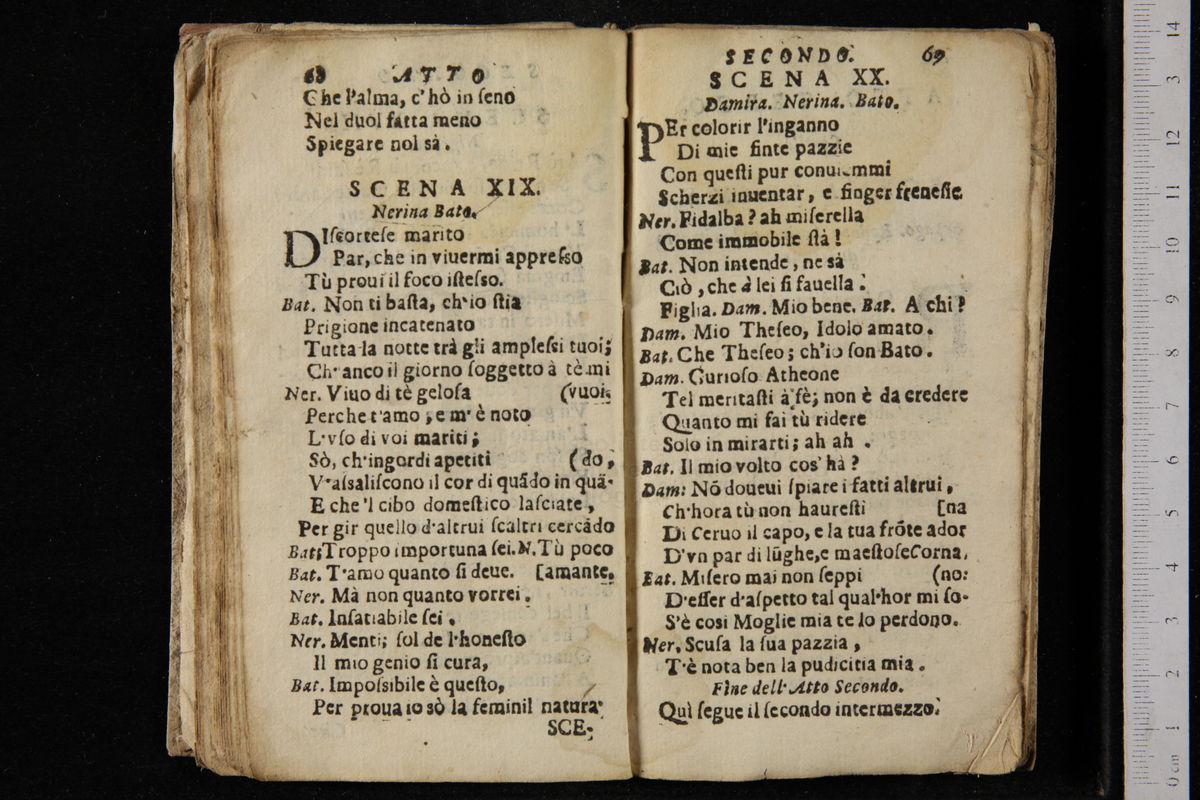 68 ATTO
Che l'alma, c'hò in ſeno
Nel duol fatta meno
Spiegare nol sà.
SCENA XIX.
Nerina Bato.
DIſcorteſe marito
Par, che in viuermi appreſſo
Tù proui il foco iſteſso.
Bat. Non ti baſta, ch'io ſtia
Prigione incatenato
Tutta la notte trà gli ampleſsi tuoi;
Ch'anco il giorno ſoggetto à tè mi
Ner. Viuo di tè geloſa (vuoi;
Perche t'amo, e m'è noto
L'vſo di voi mariti;
Sò, ch'ingordi apetiti (do,
V'aſsaliſcono il cor di quãdo in quã-
E che'l cibo domeſtico laſciate,
Per gir quello d'altrui ſcaltri cercãdo
Bat. Troppo importuna ſei. N. Tù poco
Bat. T'amo quanto ſi deue. [amante.
Ner. Mà non quanto vorrei.
Bat. Inſatiabile ſei.
Ner. Menti; ſol de l'honeſto
Il mio genio ſi cura,
Bat. Impoſsibile è queſto,
Per proua io sò la feminil natura.
SCE-
SECONDO. 69
SCENA XX.
Damira. Nerina. Bato.
PEr colorir l'inganno
Di mie finte pazzie
Con queſti pur conuiemmi
Scherzi inuentar, e finger freneſie.
Ner. Fidalba? ah miſerella
Come immobile ſtà!
Bat. Non intende, ne sà
Ciò, che à lei ſi fauella.
Figlia. Dam. Mio bene. Bat. A chi?
Dam. Mio Theſeo, Idolo amato.
Bat. Che Theſeo; ch'io ſon Bato.
Dam. Curioſo Atheone
Tel meritaſti à fè; non è da credere
Quanto mi fai tù ridere
Solo in mirarti; ah ah.
Bat. Il mio volto cos'hà?
Dam: Nõ doueui ſpiare i fatti altrui,
Ch'hora tù non haureſti [na
Di Ceruo il capo, e la tua frõte ador
D'vn par di lũghe, e maeſtoſe Corna.
Bat. Miſero mai non ſeppi (no:
D'eſſer d'aſpetto tal qual'hor mi ſo-
S'è cosi Moglie mia te lo perdono.
Ner. Scuſa la ſua pazzia,
T'è nota ben la pudicitia mia.
Fine dell'Atto Secondo.
Quì ſegue il ſecondo intermezzo.